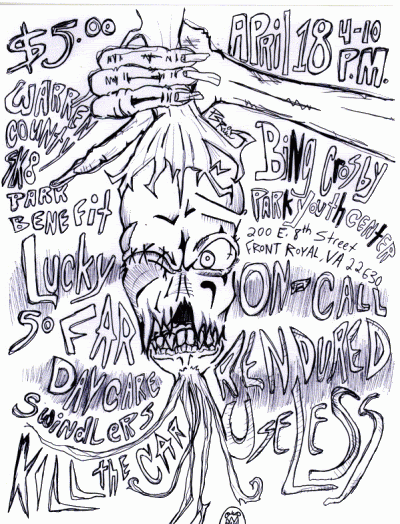 $5.00
April 18 4-10
P.M.
Warren
County
SK8
Park
Benefit
Bing Crosby
Park Youth Center
200 E. 8th Street
Front Royal, VA 22630
Lucky
So Far
On-Call
Daycare
Swindlers
Kill the Car
Useless